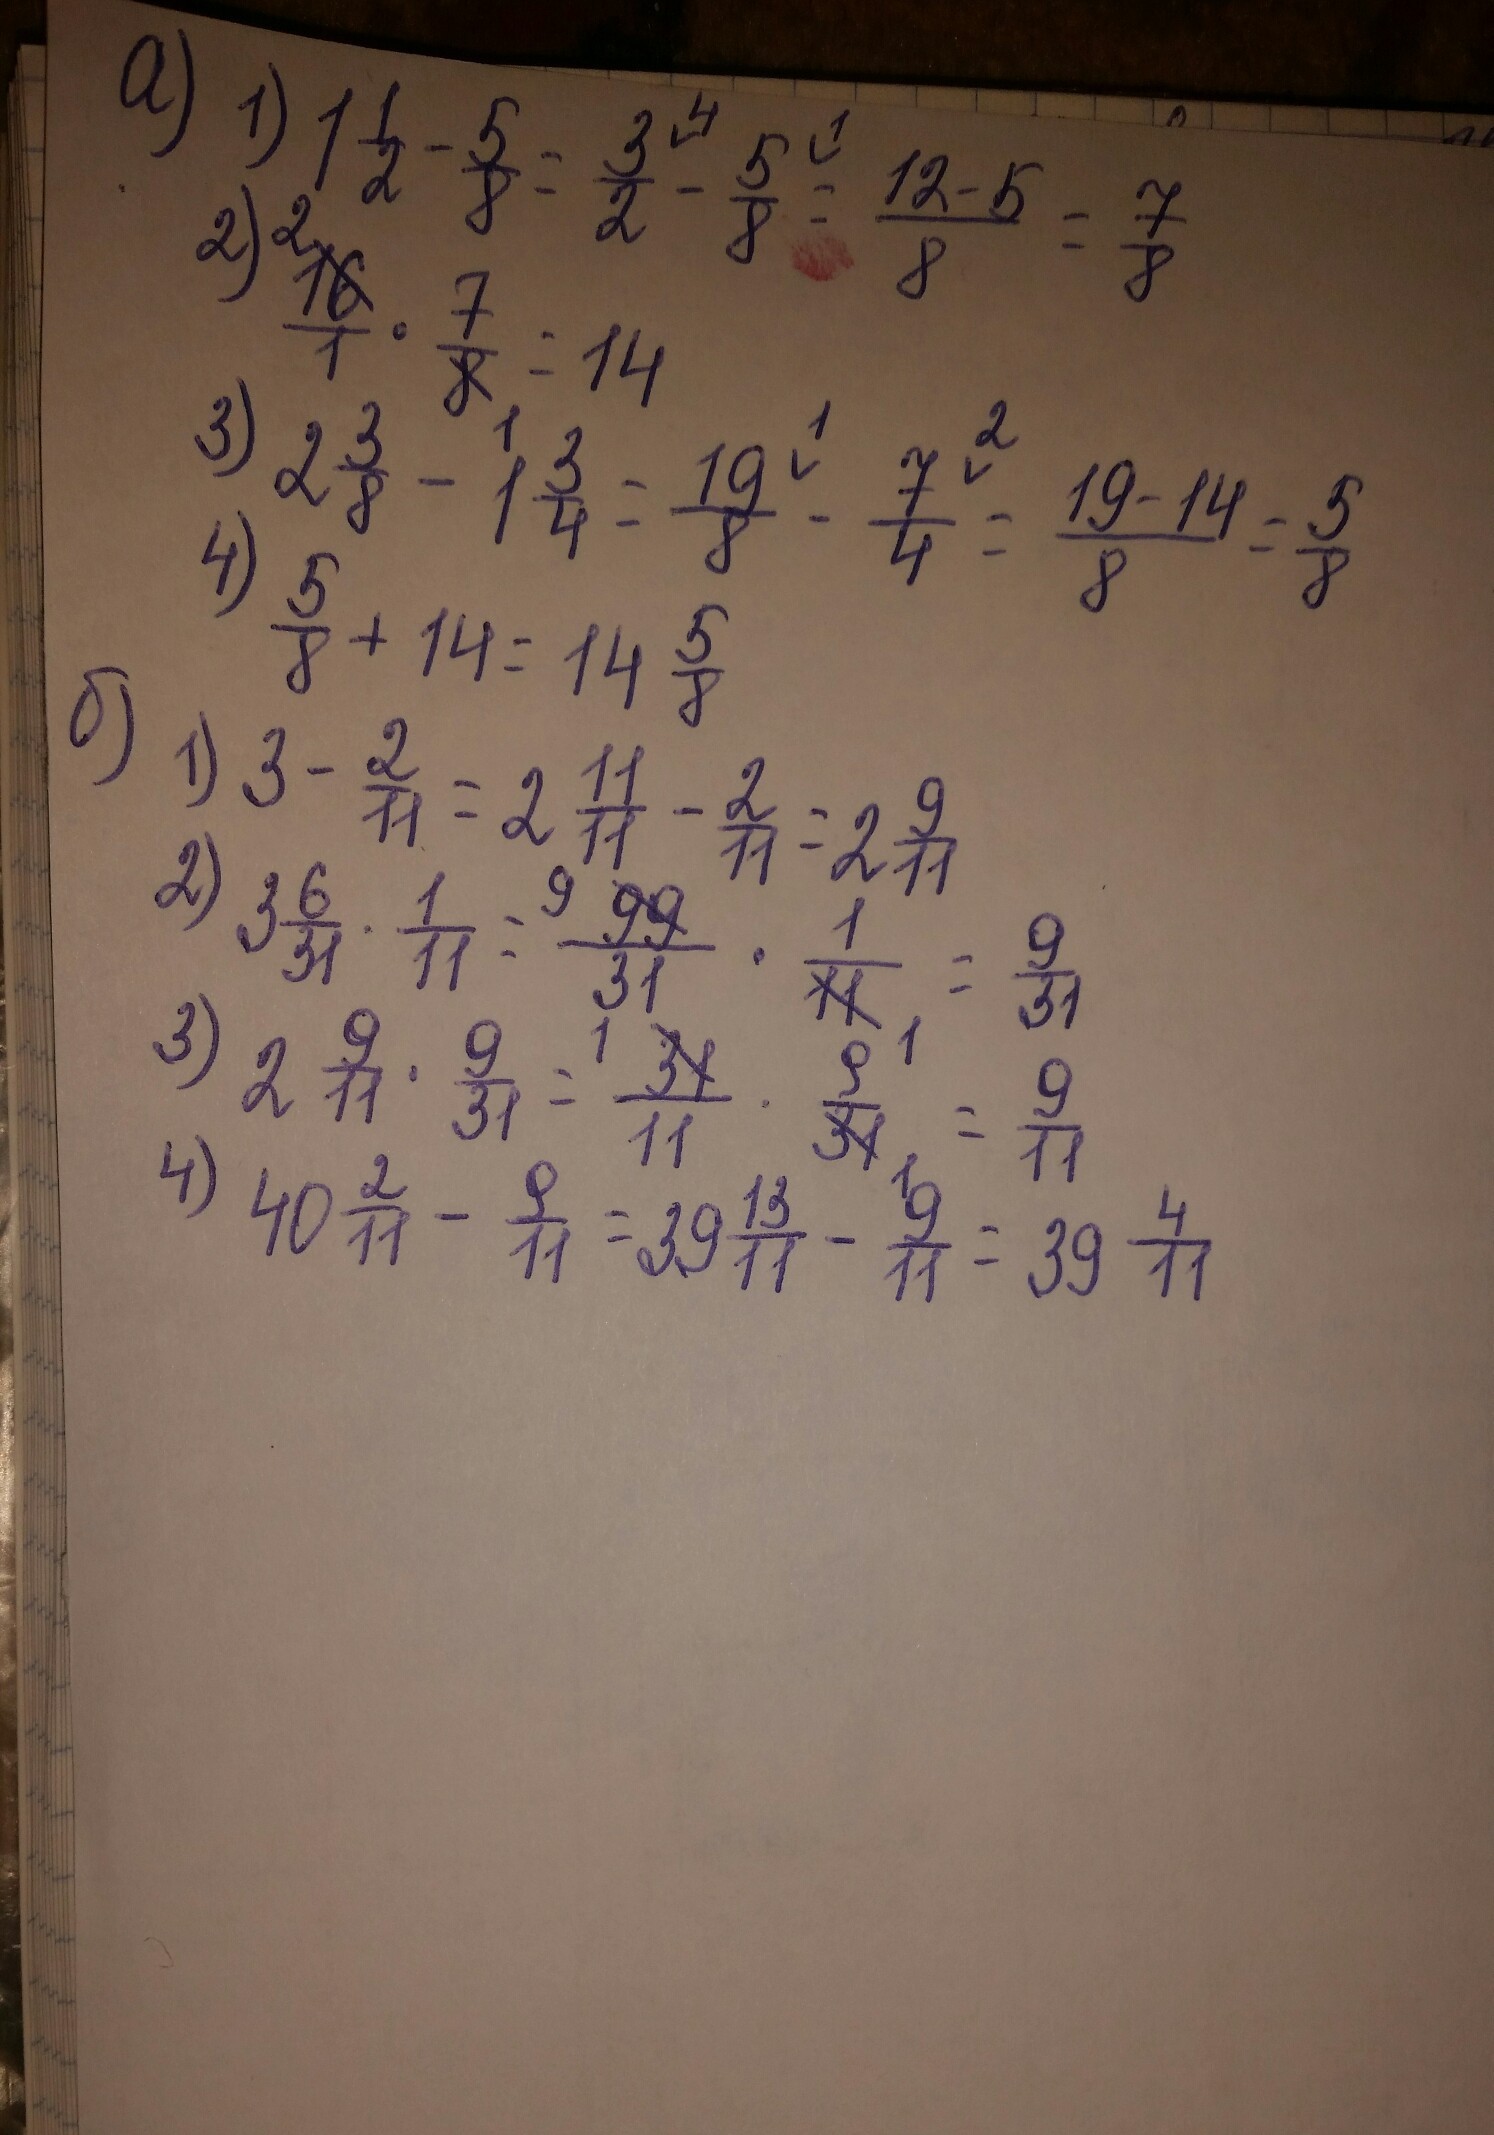 а) 1) 1 1/2 - 5/8 = 3/2 ⁴ - 5/8 ¹ = 12-5/8 = 7/8
2) ² 16/1 · 7/8 = 14
3) 2 3/8 - 1 3/4 = 19/8 ¹ - 7/4 ² = 19-14/8 = 5/8
4) 5/8 + 14 = 14 5/8
б) 1) 3 - 2/11 = 2 11/11 - 2/11 = 2 9/11
2) 3 6/31 · 1/11 = ⁹ 99/31 · 1/11 ₁ = 9/31
3) 2 9/11 · 9/31 = ¹ 31/11 · 9/31 ₁ = 9/11
4) 40 2/11 - 9/11 = 39 13/11 - 9/11 = 39 4/11